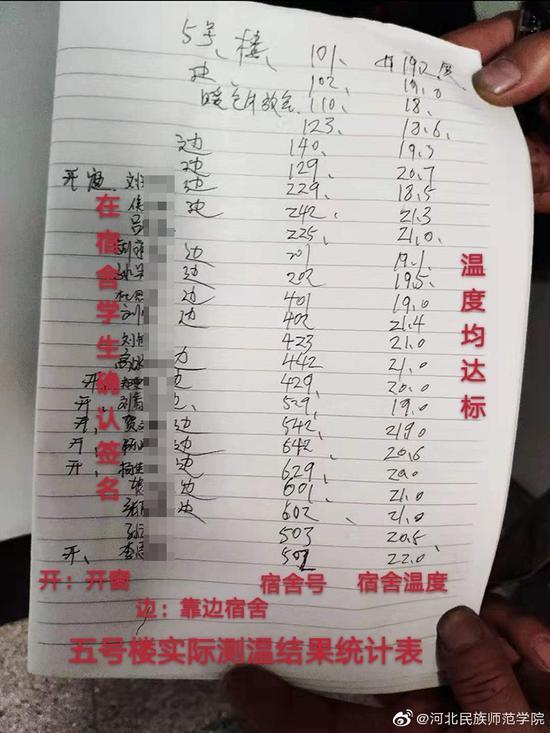 5号楼、 101、 19.2度
边 102、 19.0
暖气片放气 110、 18、
123、 18.6、
边 140、 19.3
边 129、 20.7
开窗、刘 边 229、 18.5
边 242、 21.3
吕 225、 21.0、
边 201 19.1、
边 202 19.5、
边 401 19.0
刘 边 402 21.4
刘 423 21.0
442 21.0
开、 429、 20.0
开、刘 529、 19.0
开、贺 边 542、 21.0
开、 边 642、 20.6
开、杨 边 629、 20.0
边 601、 21.0
张 边 602、 21.0
503 20.5、
开、李 502 22.0、
在宿舍学生确认签名
温度均达标
开：开窗 宿舍号 宿舍温度
边：靠边宿舍
五号楼实际测温结果统计表
@河北民族师范学院